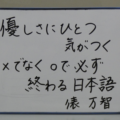 優しさにひとつ
気がつく
×でなく○で必ず
終わる日本語
俵 万智